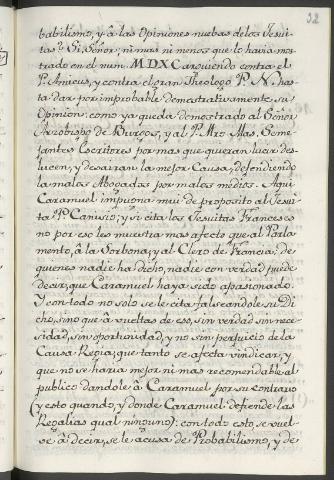 32
babilismo, y â las Opiniones nuebas de los Jesui-
tas? Si, Señor; ni mas ni menos que lo havia mos-
trado en el num. MDX arguiendo contra el
P. Amicus, y contra el gran Theologo P. N. has-
ta dar por improbable demostrativamente su
Opinion: como ya queda demostrado al Señor
Arzobispo de Burgos, y al P. Mro. Mas. Seme-
jantes Escritores por mas que quieran lucir des-
lucen, y desairan la mejor Causa, defendiendo
la malos Abogados por malos medios. Aqui
Caramuel impugna mui de proposito al Jesui-
ta P. Canisio; y si cita los Jesuitas Franceses
no por eso les muestra mas afecto que al Parla-
mento, â la Sorbona, y al Clero de Francia; de
quienes nadie ha dicho, nadie con verdad puede
decir, que Caramuel haya sido apasionado.
Y con todo no solo se le cita falseandole su Di-
cho, sino que â vueltas de eso, sin verdad, sin nece-
sidad, sin oportunidad, y no sin perjuicio de la
Causa Regia, que tanto se afecta vindicar, y
que no se haria mejor ni mas recomendable al
publico dandole â Caramuel por su contrario
(y esto quando, y donde Caramuel defiende las
Regalias qual ninguno): con todo esto, se vuel-
ve â decir, se le acusa de Probabilismo, y de